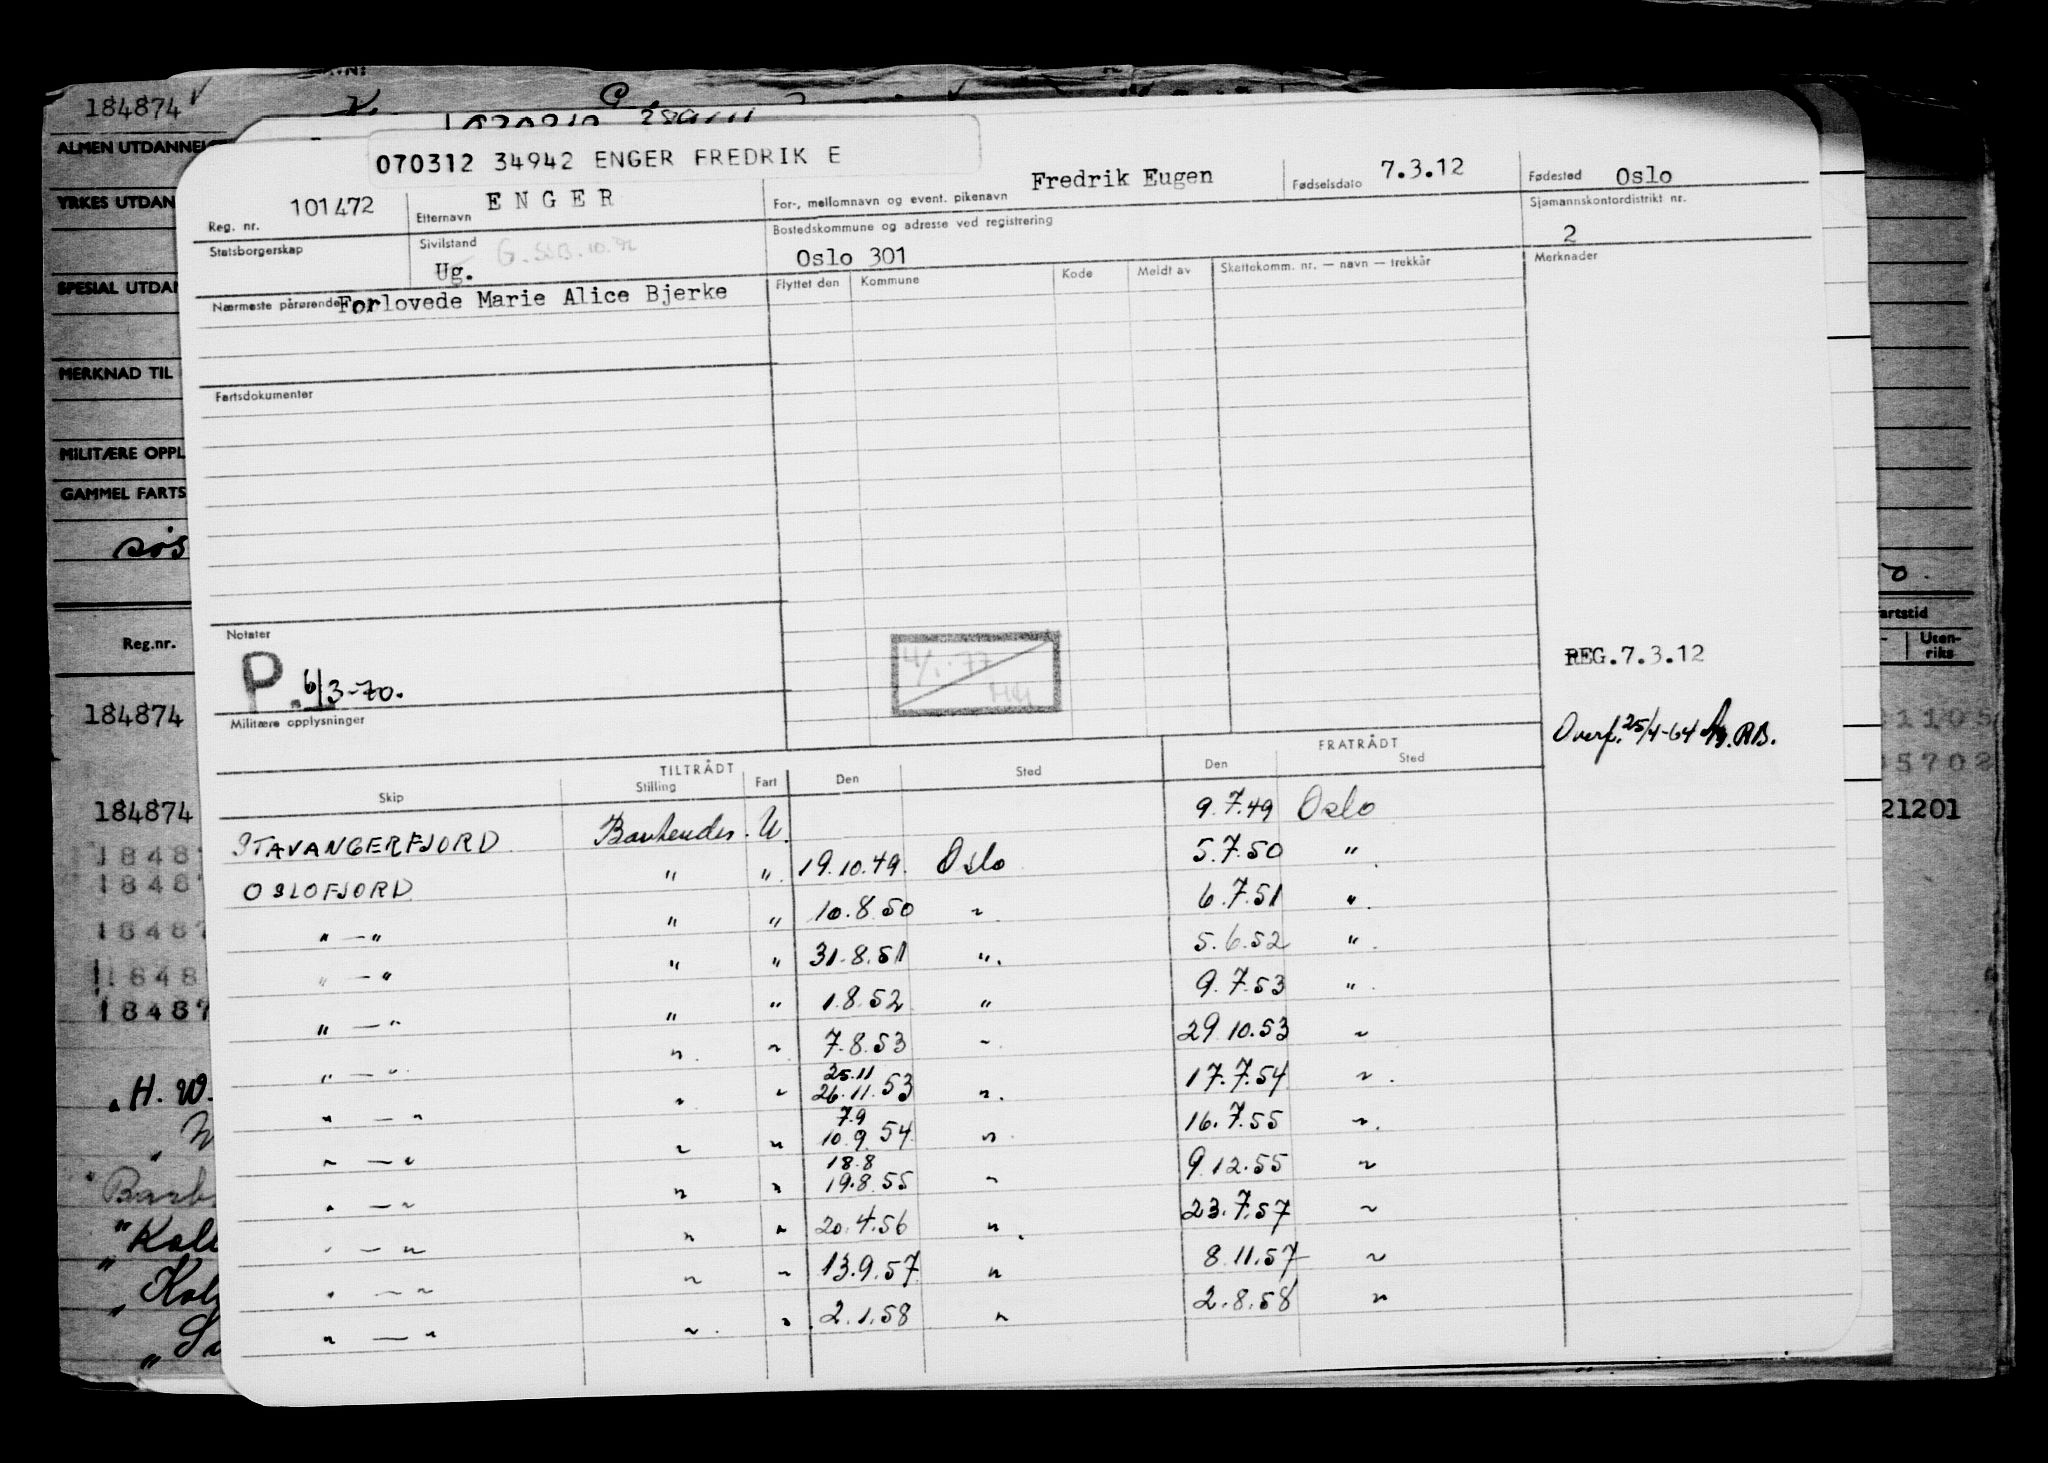 184874
070312 34942 ENGER FREDRIK E
Reg. nr. 101472 Etternavn ENGER For-, mellomnavn og event. pikenavn Fredrik Eugen Fødselsdato 7.3.12 Fødested Oslo
Statsborgerskap Sivilstand Ug. Bostedskommune og adresse ved registrering Oslo 301 Sjømannskontordistrikt nr. 2
Nærmeste pårørende Forlovede Marie Alice Bjerke Flyttet den Kommune Kode Meldt av Skattekomm. nr. — navn — trekkår Merknader
Fartsdokumenter
Notater
P. 6/3-70.
REG.7.3.12
Militære opplysninger
Overf. 25/4-64 RB.
TILTRÅDT FRATRÅDT
Skip Stilling Fart Den Sted Den Sted
STAVANGERFJORD U. 9.7.49 Oslo
OSLOFJORD " " 19.10.49. Oslo 5.7.50 "
" — " " " 10.8.50 " 6.7.51 "
" — " " " 31.8.51 " 5.6.52 "
" — " " " 1.8.52 " 9.7.53 "
" — " " " 7.8.53 " 29.10.53 "
25.11
" — " " " 26.11.53 " 17.7.54 "
7.9
" — " " " 10.9.54 " 16.7.55 "
18.8
" — " " " 19.8.55 " 9.12.55 "
" — " " " 20.4.56 " 23.7.57 "
" — " " " 13.9.57 " 8.11.57 "
" — " " " 2.1.58 " 2.8.58 "
ALMEN UTDANNELSE
YRKES UTDAN
SPESIAL UTDAN
MERKNAD TIL
MILITÆRE OPPL
GAMMEL FARTS
søs
Reg.nr.
184874
184874
1848
1848
18487
1848
18487
H. W.
artstid
Uten-
riks
1105
5702
21201